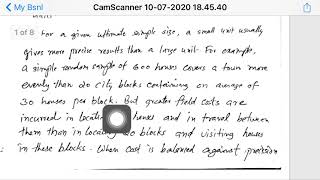 My Bsnl
CamScanner 10-07-2020 18.45.40
1 of 8
For a given ultimate sample size, a small unit usually
gives more precise results than a large unit. For example,
a simple random sample of 600 houses covers a town more
evenly than 20 city blocks containing an average of
30 houses per block. But greater field costs are
incurred in locating houses and in travel between
them than in locating 20 blocks and visiting houses
in these blocks. When cost is balanced against precision